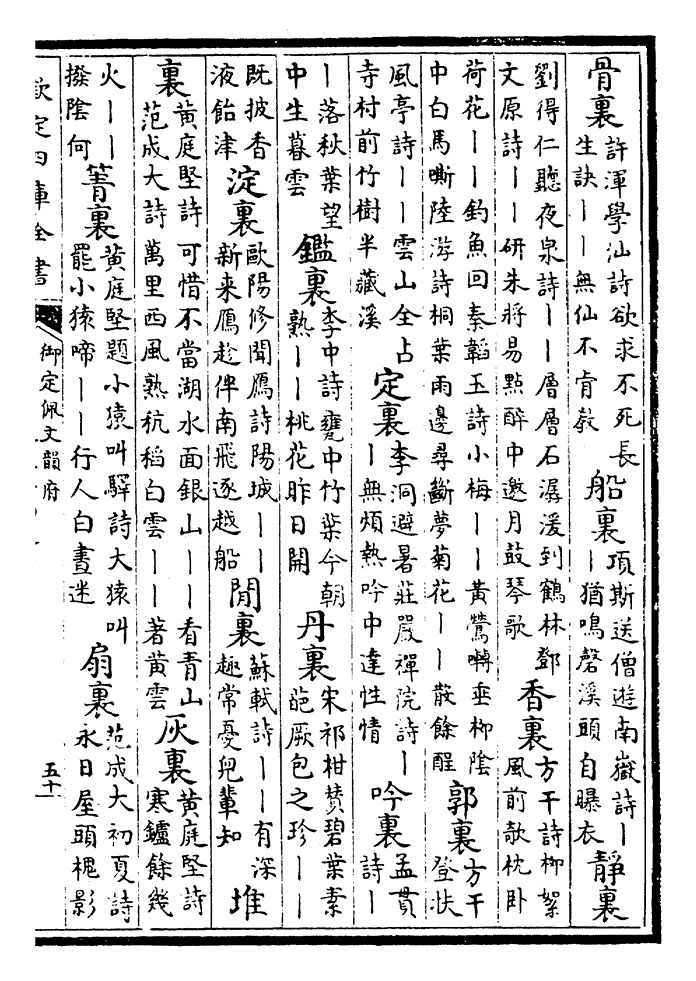 骨裏許渾學仙詩欲求不死長生訣丨丨無仙不肯教船裏項斯送僧遊南嶽詩丨丨猶鳴磬溪頭自曝衣靜裏
劉得仁聽夜泉詩丨丨層層石潺湲到鶴林鄧文原詩丨丨研朱將易點醉中邀月鼓琴歌香裏方干詩柳絮風前欹枕卧
荷花丨丨釣魚回秦韜玉詩小梅丨丨黃鶯囀垂柳陰中白馬嘶陸游詩桐葉雨邊尋斷夢菊花丨丨散餘酲郭裏方干登狀
風亭詩丨丨雲山全占寺村前竹樹半藏溪定裏李洞避暑莊嚴禪院詩丨丨無煩熱吟中達性情吟裏孟貫詩丨
丨落秋葉望中生暮雲鑑裏李中詩甕中竹葉今朝熟丨丨桃花昨日開丹裏宋祁柑贊碧葉素葩厥包之珍丨丨
既披香液飴津淀裏歐陽修聞鴈詩陽城丨丨新来鴈趁伴南飛逐越船閒裏蘇軾詩丨丨有深趣常憂兒輩知堆
裏黃庭堅詩可惜不當湖水面銀山丨丨看青山范成大詩萬里西風熟秔稻白雲丨丨著黃雲灰裏黃庭堅詩寒鑪餘幾
火丨丨撥陰何箐裏黃庭堅題小猿叫驛詩大猿叫罷小猿啼丨丨行人白晝迷扇裏范成大初夏詩永日屋頭槐影
欽定四庫全書
御定佩文韻府
五十一